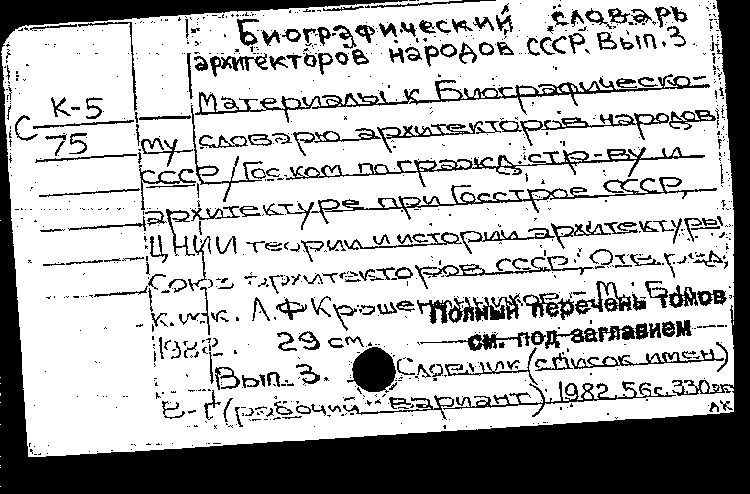 Биографический словарь
архитекторов народов СССР. Вып. 3
К-5
С
75
Материалы к Биографическо-
му словарю архитекторов народов
СССР / Гос. ком. по гражд. стр-ву и
архитектуре при Госстрое СССР,
ЦНИИ теории и истории архитектуры,
Союз архитекторов СССР; Отв. ред.
к. иск. А. Ф Крашенинников. - М.: Б.и.
Полный перечень томов
1982. 29 см.
см. под заглавием
Вып. 3. Словник (список имен)
В-Г (рабочий вариант). 1982. 56 с. 330 экз.